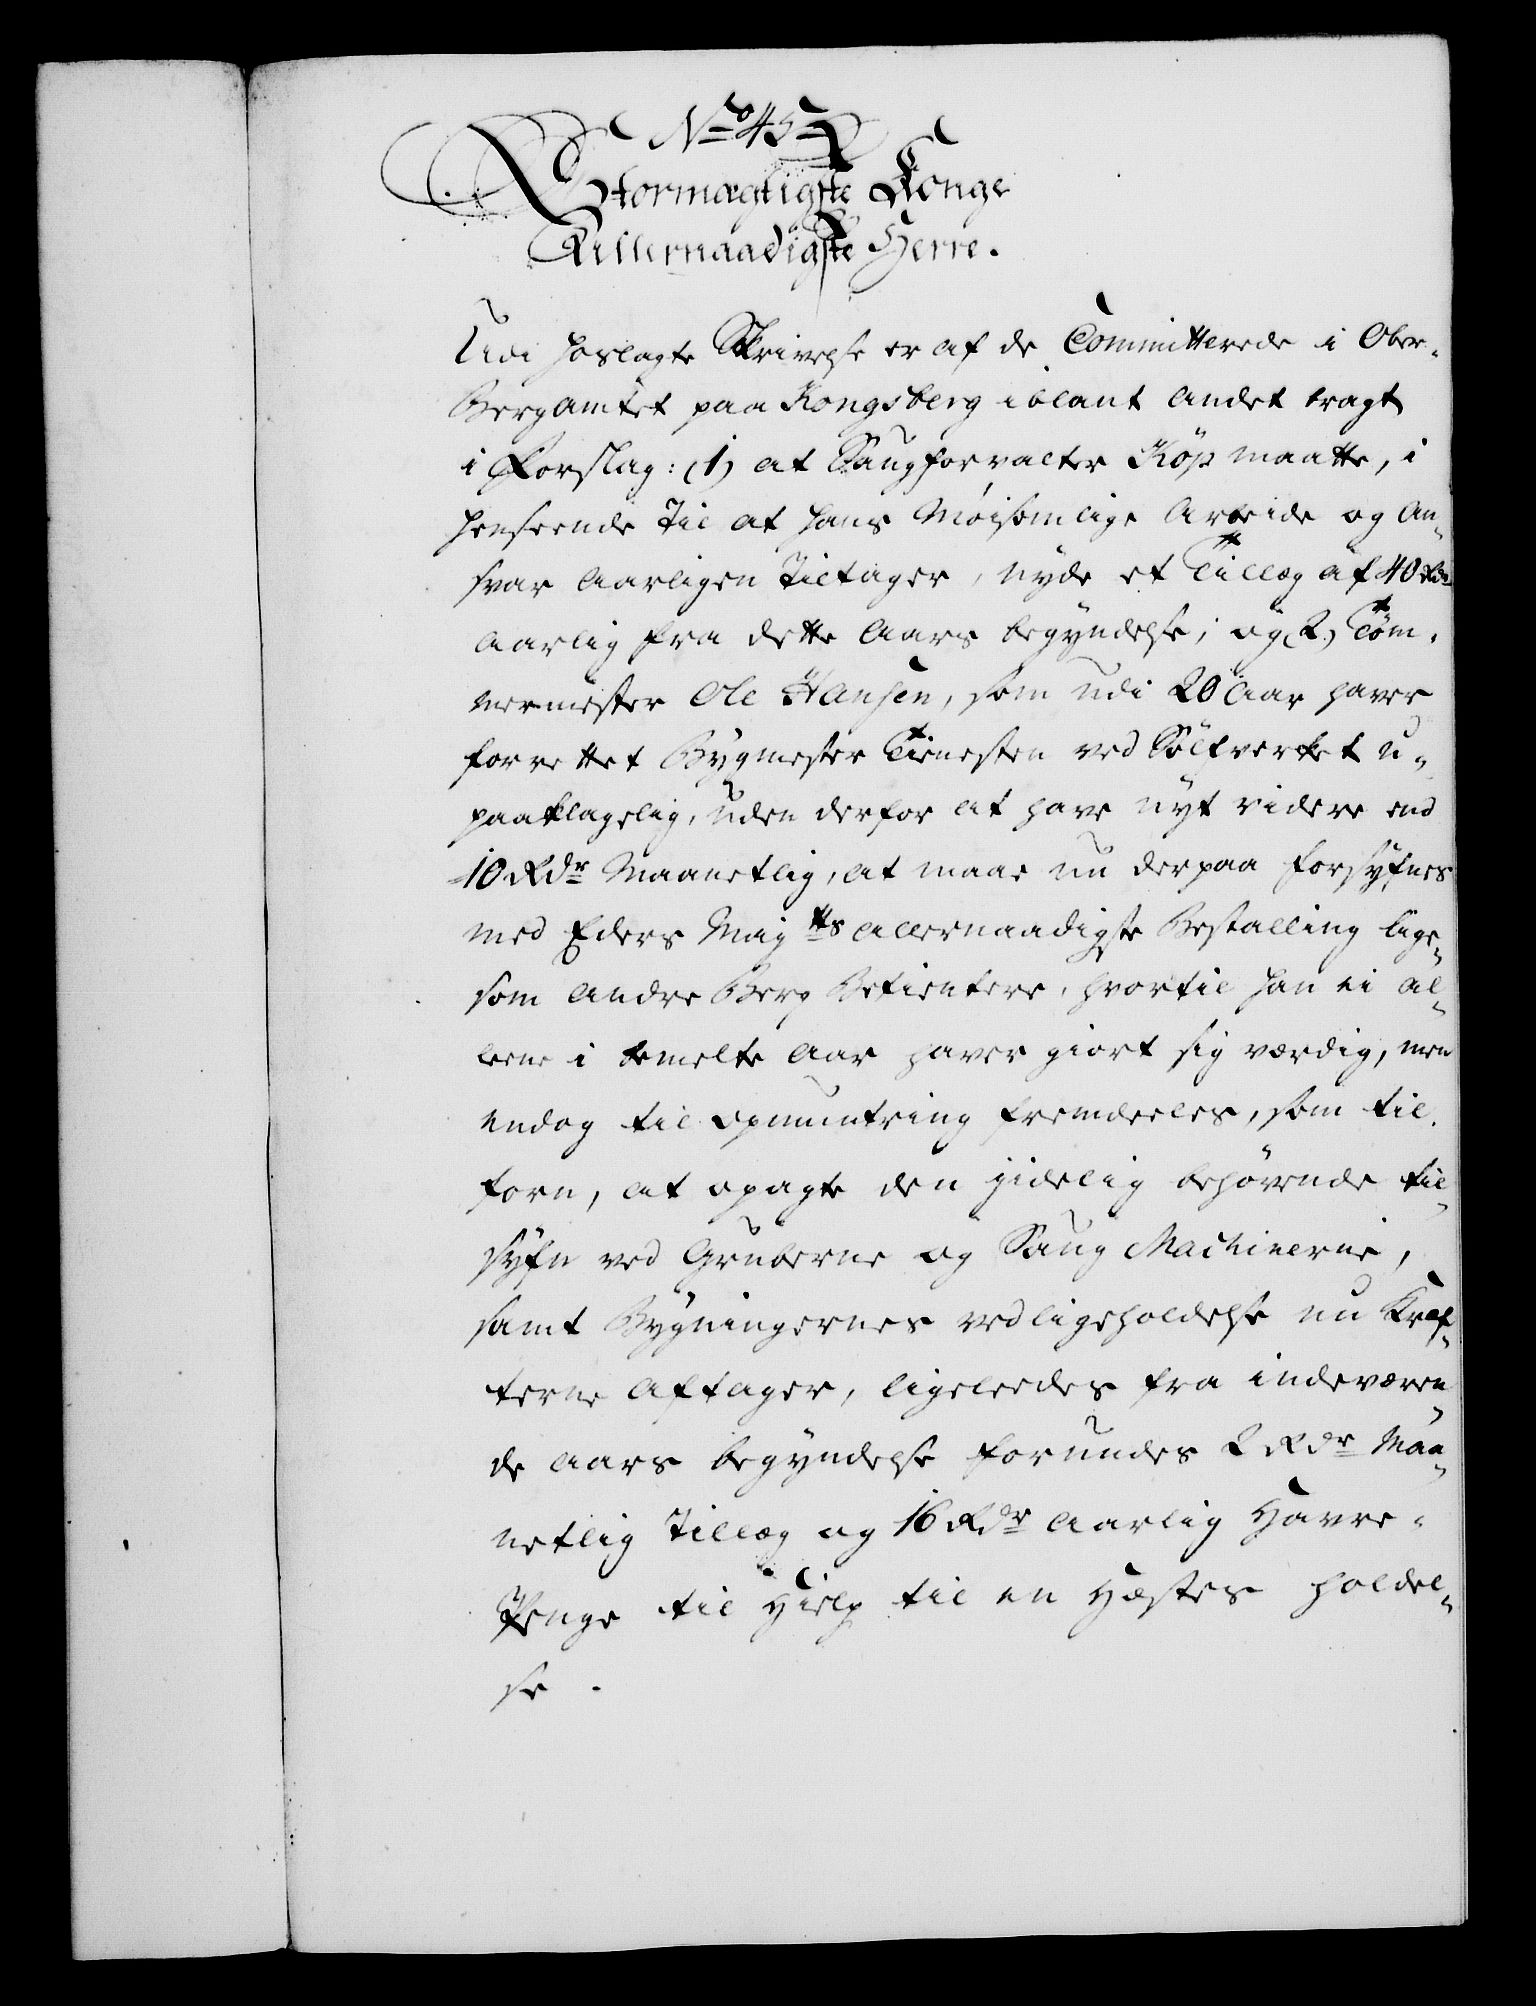 No 45
Stormægtigste Konge
Allernaadigste Herre.
Udi hoslagte Skrivelse er af de Committerede i Ober-
Bergamtet paa Kongsberg iblant andet bragt
i Forslag: (1) at Saugforvalter Köp maatte, i
henseende til at hans Møisomlige Arbeide og An-
svar Aarligen Tiltager, nyde et Tillæg af 40 Rdr
aarlig fra dette Aars begyndelse; og 2) Töm-
mermester Ole Hansen, som udi 20 Aar haver
forrettet Bygmester Tienesten ved Sölfverket u-
paaklagelig, uden derfor at have nyt videre end
10 Rdr Maanetlig, at maae nu derpaa forsyfnes
med Eders Majtts allernaadigste Bestalling lige-
som andre Berg Betientere, hvortil han ei al-
leene i bemelte Aar haver giort sig værdig, men
endog til opmuntring fremdeeles, som til-
forn, at opagte den jidelig behövende til-
syfn ved Gruberne og Saug Machinerie,
samt Bygningernes vedligeholdelse nu Kræf-
terne aftager, ligeleedes fra indeværen-
de Aars begyndelse forundes 2 Rdr Maa-
netlig Tillæg og 16 Rdr Aarlig Havre-
Penge til Hielp til en Hæstes holdel-
se.